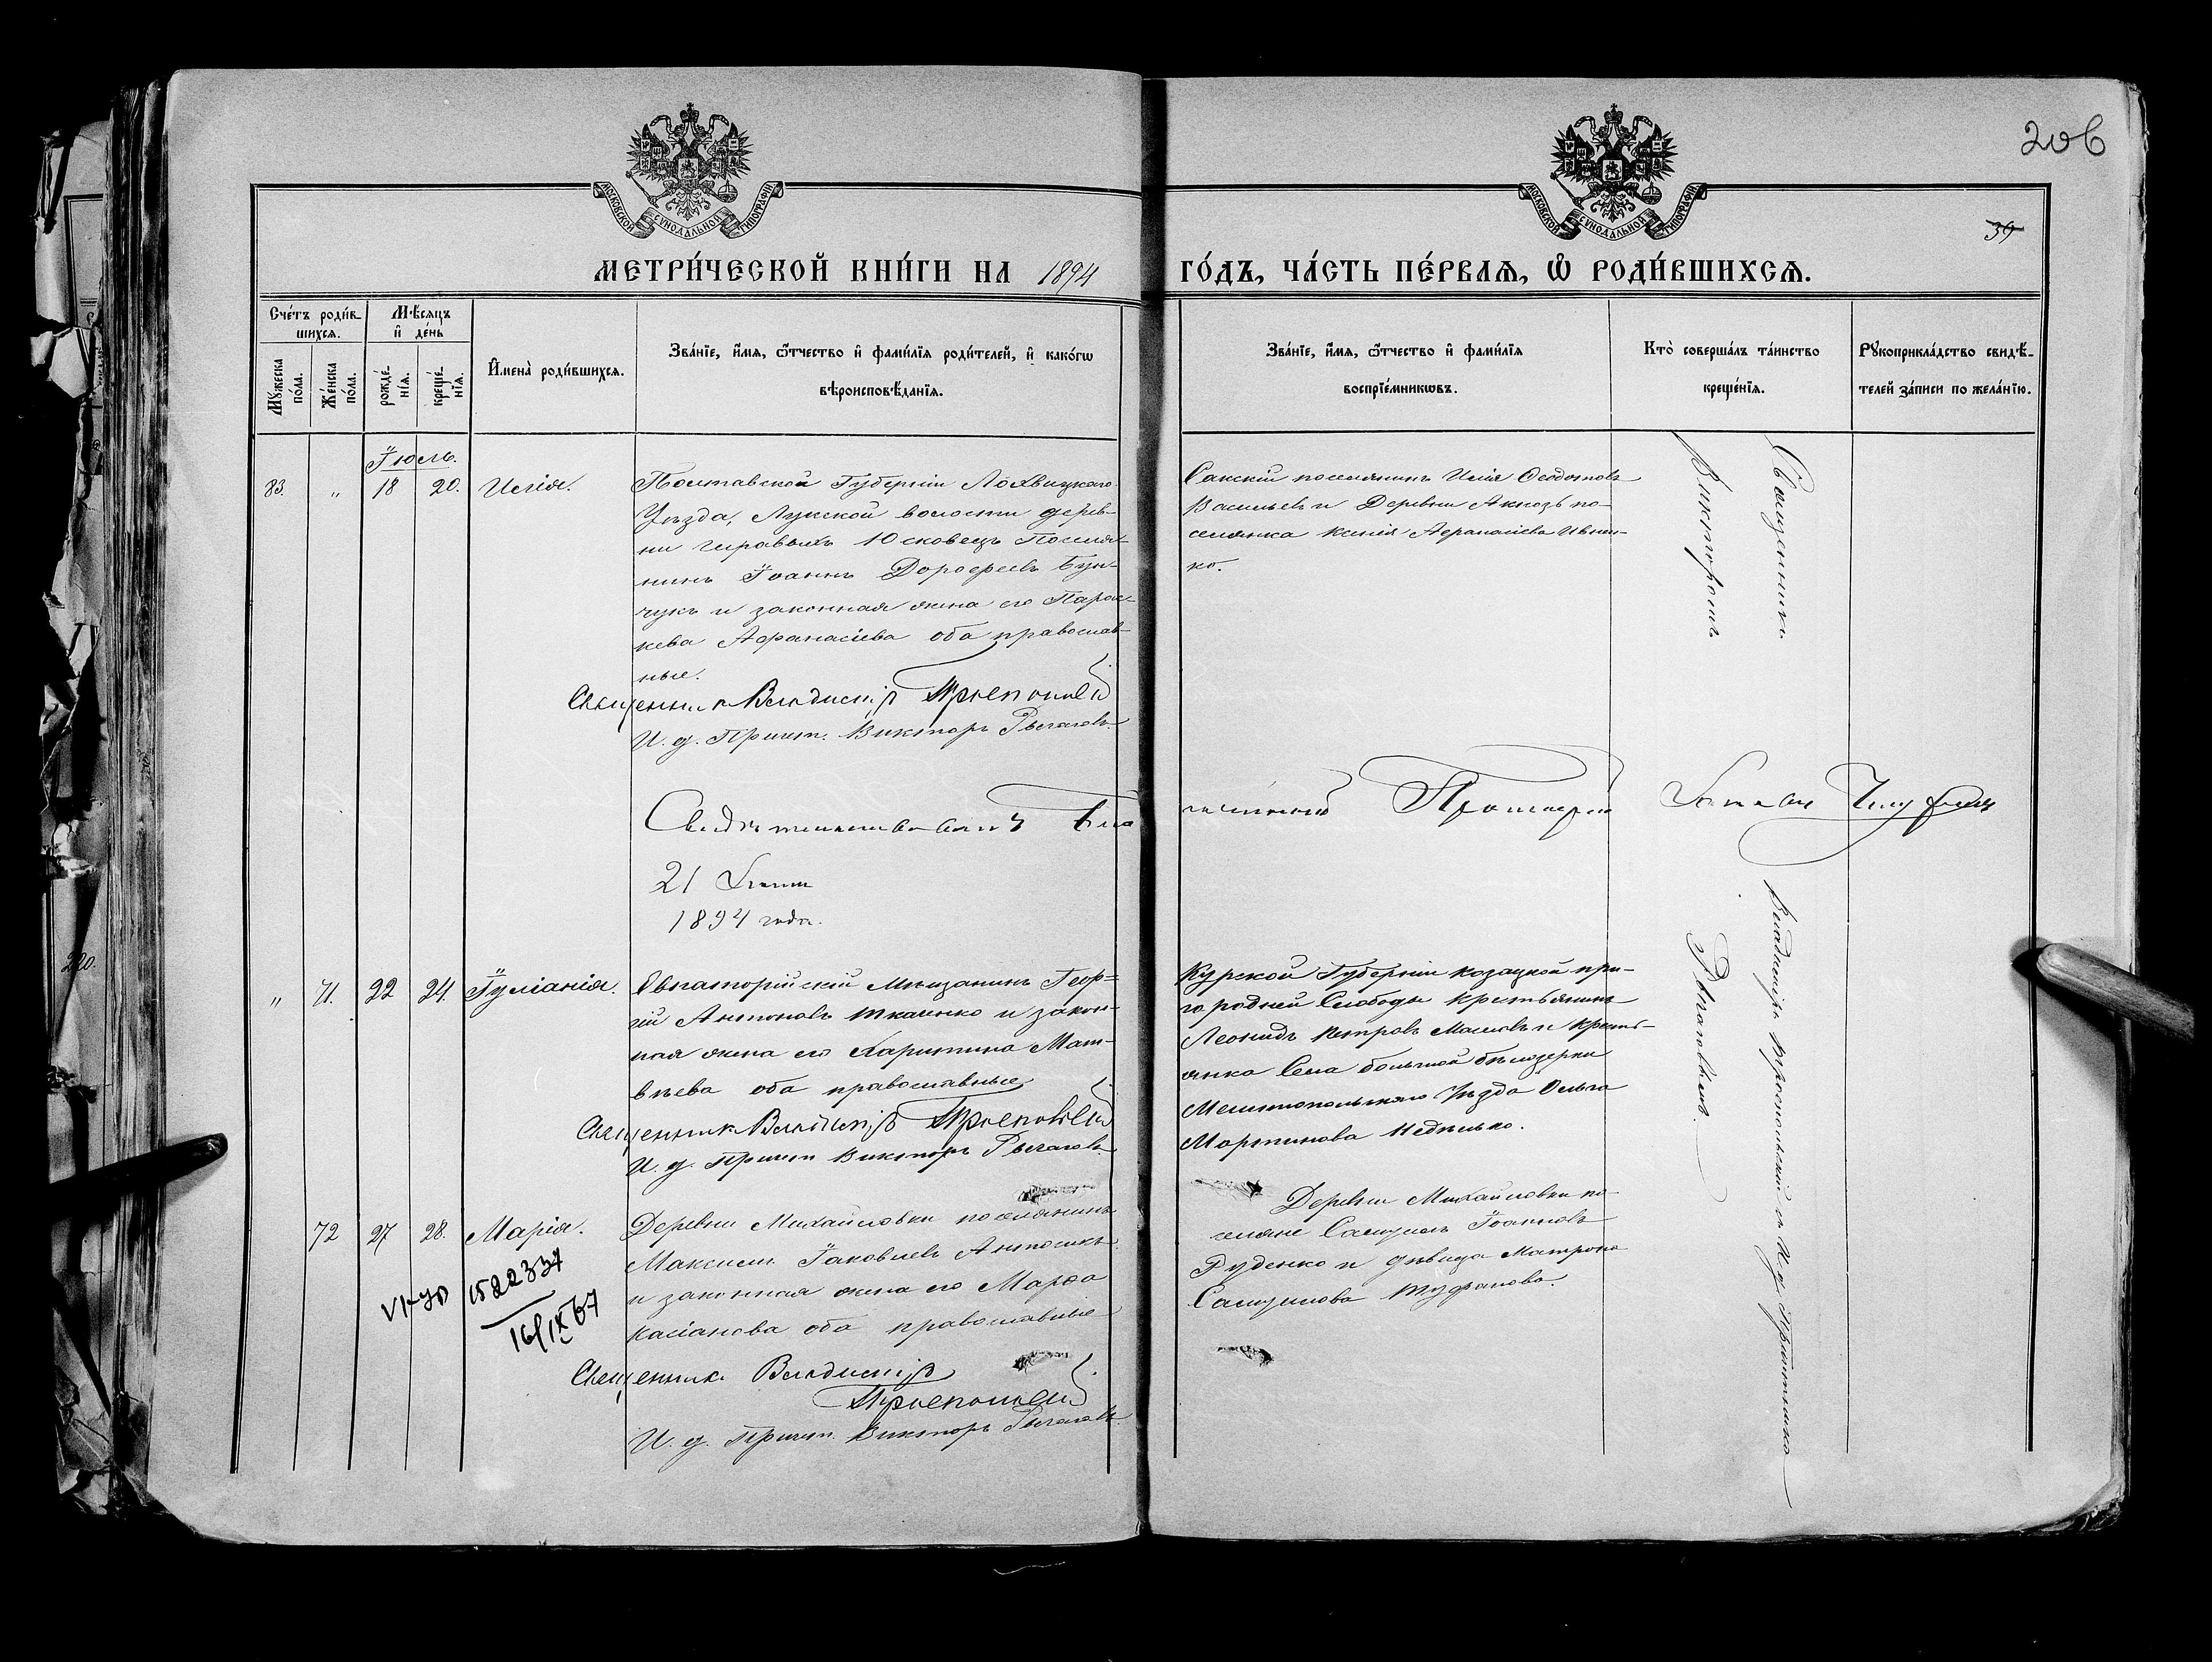 206
39
МОСКОВСКОЙ СУНОДАЛЬНОЙ ТИПОГРАФІИ
МОСКОВСКОЙ СУНОДАЛЬНОЙ ТИПОГРАФІИ
МЕТРИ́ЧЕСКОЙ КНИ́ГИ НА 1894 ГО́ДЪ, ЧА́СТЬ ПЕ́РВАѦ, Ѡ҆ РОДИ́ВШИХСѦ.
Сче́тъ роди́в-
шихсѧ.
Мꙋ́жеска по́ла.
Же́нска по́ла.
Мѣ́сѧцъ
и҆ де́нь
рожде́-
нїѧ.
креще́-
нїѧ.
И҆мена̀ роди́вшихсѧ.
Зва́нїе, и҆́мѧ, ѻ҆́тчество и҆ фами́лїѧ роди́телей, и҆ како́гѡ
вѣроисповѣ́данїѧ.
Зва́нїе, и҆́мѧ, ѻ҆́тчество и҆ фами́лїѧ
воспрїе́мникѡвъ.
Кто̀ соверша́лъ та́инство
креще́нїѧ.
Рꙋкоприкла́дство свидѣ́-
телей за́писи по жела́нїю.
Іюль.
83. " 18 20. Илія.
Полтавской Губерніи Лохвицкаго
Уѣзда, Лукской волости дерев-
ни Юсковецъ Поселя-
нинъ Іоаннъ Дорофеевъ Бун-
чукъ и законная жена его Парас-
кева Афанасіева оба православ-
ные.
Священникъ Владиміръ Прѣспольскій
И. д. Причет. Викторъ Рыгаловъ
Сакскій поселянинъ Илія Ѳеодотовъ
Васильевъ и Деревни Аккозъ по-
селянка Ксенія Афанасіева Ивнен-
ко.
Священникъ
Викторомъ
Свидѣтельствовалъ Бла
гочинный Протоіерей
21
1894 года.
" 71. 22 24. Іуліанія.
Евпаторійскій Мѣщанинъ Геор-
гій Антоновъ Ткаченко и закон-
ная жена его Харитина Мат-
вѣева оба православные
Священникъ Владиміръ
И. д. Причет Викторъ Рыгаловъ
Курской Губерніи козацкой при-
городней Слободы Крестьянинъ
Леонидъ Петровъ Масловъ и Кресть-
янка Села большой бѣлозерки
Мелитопольскаго Уѣзда Ольга
Мартинова Недѣлько.
72 27 28. Марія.
Деревни Михайловки поселянинъ
Максимъ Іаковлевъ Антосикъ
и законная жена его Марѳа
Касіанова оба православные
Священникъ Владиміръ
И. д. Причет. Викторъ Рыгаловъ
Деревни Михайловки по-
селяне Самуилъ Іоанновъ
Руденко и дѣвица Матрона
Самуилова
VI-УО 1522337
16/IX 67
Владиміръ
и И. д. Причетника
220.